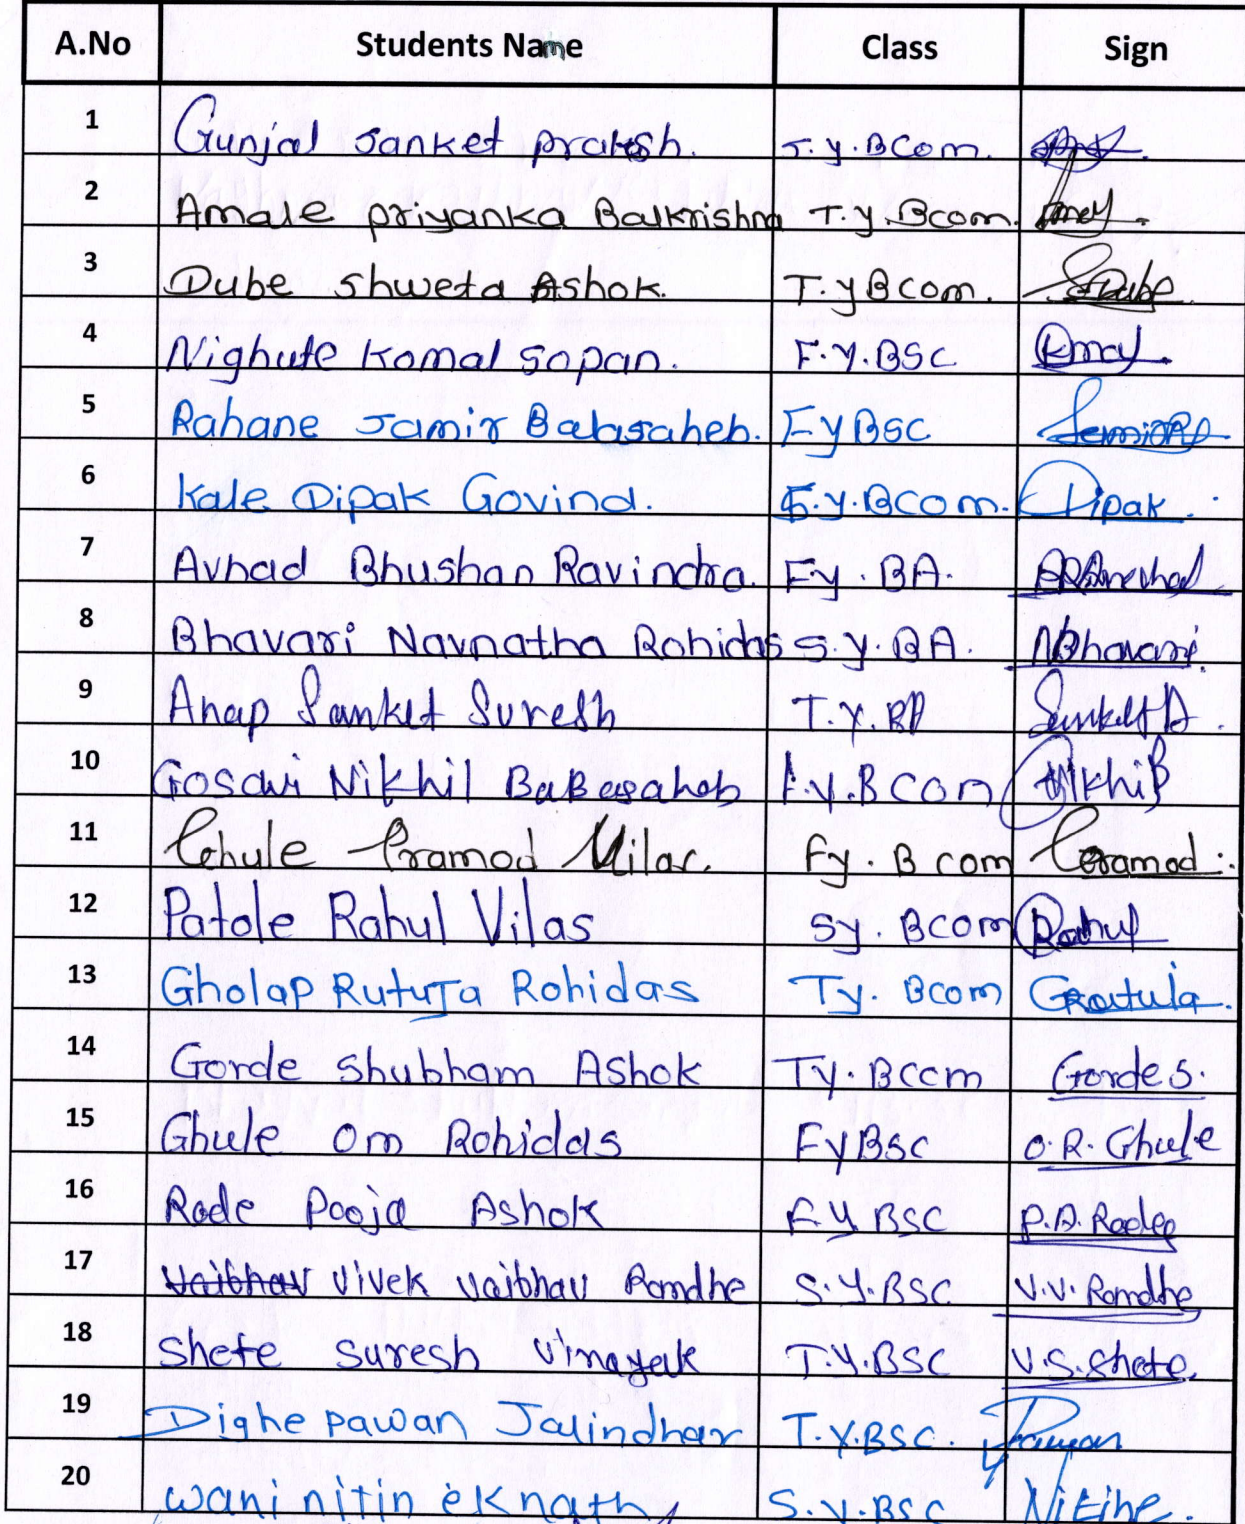 A.No Students Name Class Sign
1 Gunjal Sanket prakash. T.y.BCom.
2 Amale priyanka Balkrishna T.y.Bcom.
3 Dube shweta Ashok. T.yBcom. SDube
4 Nighute Komal sopan. F.Y.BSC
5 Rahane Samir Balasaheb. FyBSC
6 Kale Dipak Govind. F.y.BCom. Dipak.
7 Avhad Bhushan Ravindra. Fy.BA.
8 Bhavari Navnatha Rohidas S.y.BA. NBhavari.
9 Anap Sanket Suresh T.Y.BA Sanket A.
10 Gosavi Nikhil BaBasaheb F.Y.BCom Nikhil
11 Ghule Pramod Vilas. Fy.B com Pramod
12 Patole Rahul Vilas Sy.BCom Rahul
13 Gholap RutuJa Rohidas Ty.Bcom
14 Gorde shubham Ashok Ty.BCom Gorde S.
15 Ghule om Rohidas FyBSC O.R.Ghule
16 Rode Pooja Ashok F.Y BSC P.A.Rode
17 Vaibhav Vivek Vaibhav Ramdhe S.Y.BSC V.V.Ramdhe
18 Shete suresh vinayak T.Y.BSC V.S.Shete.
19 Dighe pawan Jalindhar T.Y.BSC. Pawan
20 wani nitin eknath S.Y.BSC